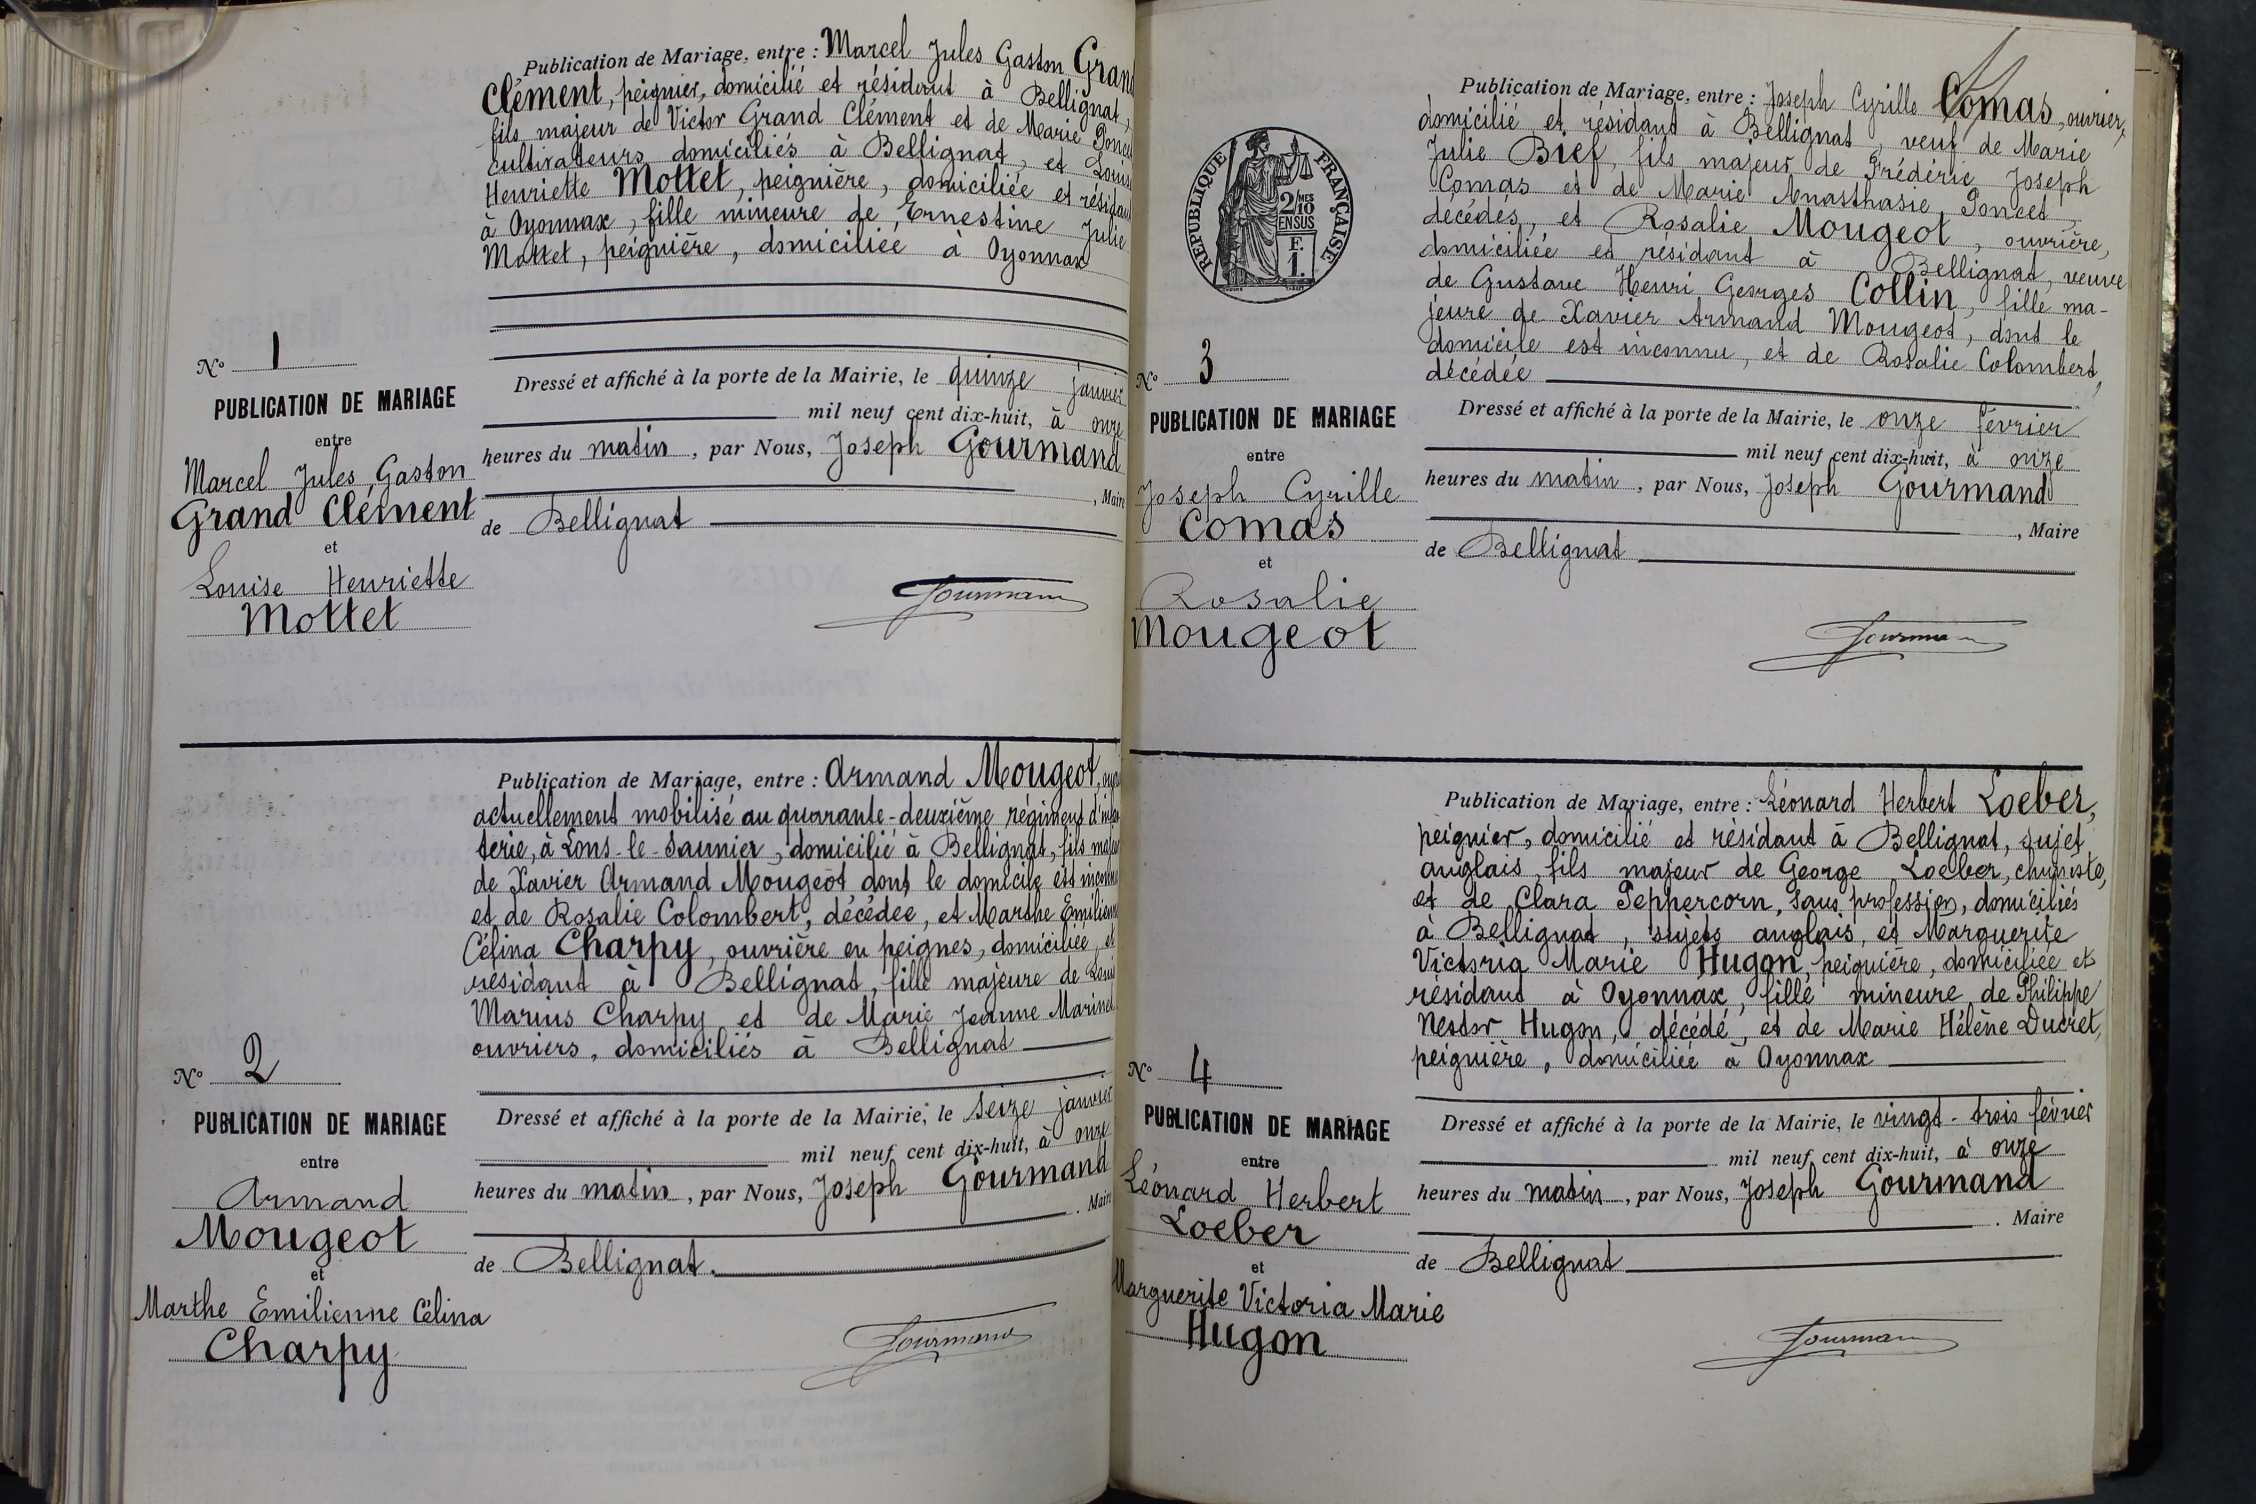 Publication de Mariage, entre : Marcel Jules Gaston Grand
Clément, peignier, domicilié et résidant à Bellignat,
fils majeur de Victor Grand Clément et de Marie Poncet
cultivateurs domiciliés à Bellignat, et Louise
Henriette Mottet, peignière, domiciliée et résidant
à Oyonnax, fille mineure de Ernestine Julie
Mottet, peignière, domiciliée à Oyonnax
N° 1
PUBLICATION DE MARIAGE
entre
Marcel Jules Gaston
Grand Clément
et
Louise Henriette
Mottet
Dressé et affiché à la porte de la Mairie, le quinze janvier
mil neuf cent dix-huit, à onze
heures du matin, par Nous, Joseph Gourmand
, Maire
de Bellignat
Gourmand
Publication de Mariage, entre : Armand Mougeot,
actuellement mobilisé au quarante-deuxième régiment d'infan
terie, à Lons-le-Saunier, domicilié à Bellignat, fils majeur
de Xavier Armand Mougeot dont le domicile est inconnu
et de Rosalie Colombert, décédée, et Marthe Emilienne
Célina Charpy, ouvrière en peignes, domiciliée et
résidant à Bellignat, fille majeure de Louis
Marius Charpy et de Marie Jeanne Marinet
ouvriers, domiciliés à Bellignat
N° 2
PUBLICATION DE MARIAGE
entre
Armand
Mougeot
et
Marthe Emilienne Célina
Charpy
Dressé et affiché à la porte de la Mairie, le seize janvier
mil neuf cent dix-huit, à onze
heures du matin, par Nous, Joseph Gourmand
. Maire
de Bellignat.
Gourmand
Publication de Mariage, entre : Joseph Cyrille Comas, ouvrier,
domicilié et résidant à Bellignat, veuf de Marie
Julie Bief, fils majeur de Frédéric Joseph
Comas et de Marie Anasthasie Poncet,
décédés, et Rosalie Mougeot, ouvrière,
domiciliée et résidant à Bellignat, veuve
de Gustave Henri Georges Collin, fille ma-
jeure de Xavier Armand Mougeot, dont le
domicile est inconnu, et de Rosalie Colombert,
décédée
RÉPUBLIQUE FRANÇAISE
2/MES
10
EN SUS
F.
1.
N° 3
PUBLICATION DE MARIAGE
entre
Joseph Cyrille
Comas
et
Rosalie
Mougeot
Dressé et affiché à la porte de la Mairie, le onze février
mil neuf cent dix-huit, à onze
heures du matin, par Nous, Joseph Gourmand
, Maire
de Bellignat
Gourmand
Publication de Mariage, entre : Léonard Herbert Loeber,
peignier, domicilié et résidant à Bellignat, sujet
anglais, fils majeur de George Loeber, chimiste,
et de Clara Peppercorn, sans profession, domiciliés
à Bellignat, sujets anglais, et Marguerite
Victoria Marie Hugon, peignière, domiciliée et
résidant à Oyonnax, fille mineure de Philippe
Nestor Hugon, décédé, et de Marie Hélène Ducret,
peignière, domiciliée à Oyonnax
N° 4
PUBLICATION DE MARIAGE
entre
Léonard Herbert
Loeber
et
Marguerite Victoria Marie
Hugon
Dressé et affiché à la porte de la Mairie, le vingt-trois février
mil neuf cent dix-huit, à onze
heures du matin, par Nous, Joseph Gourmand
. Maire
de Bellignat
Gourmand